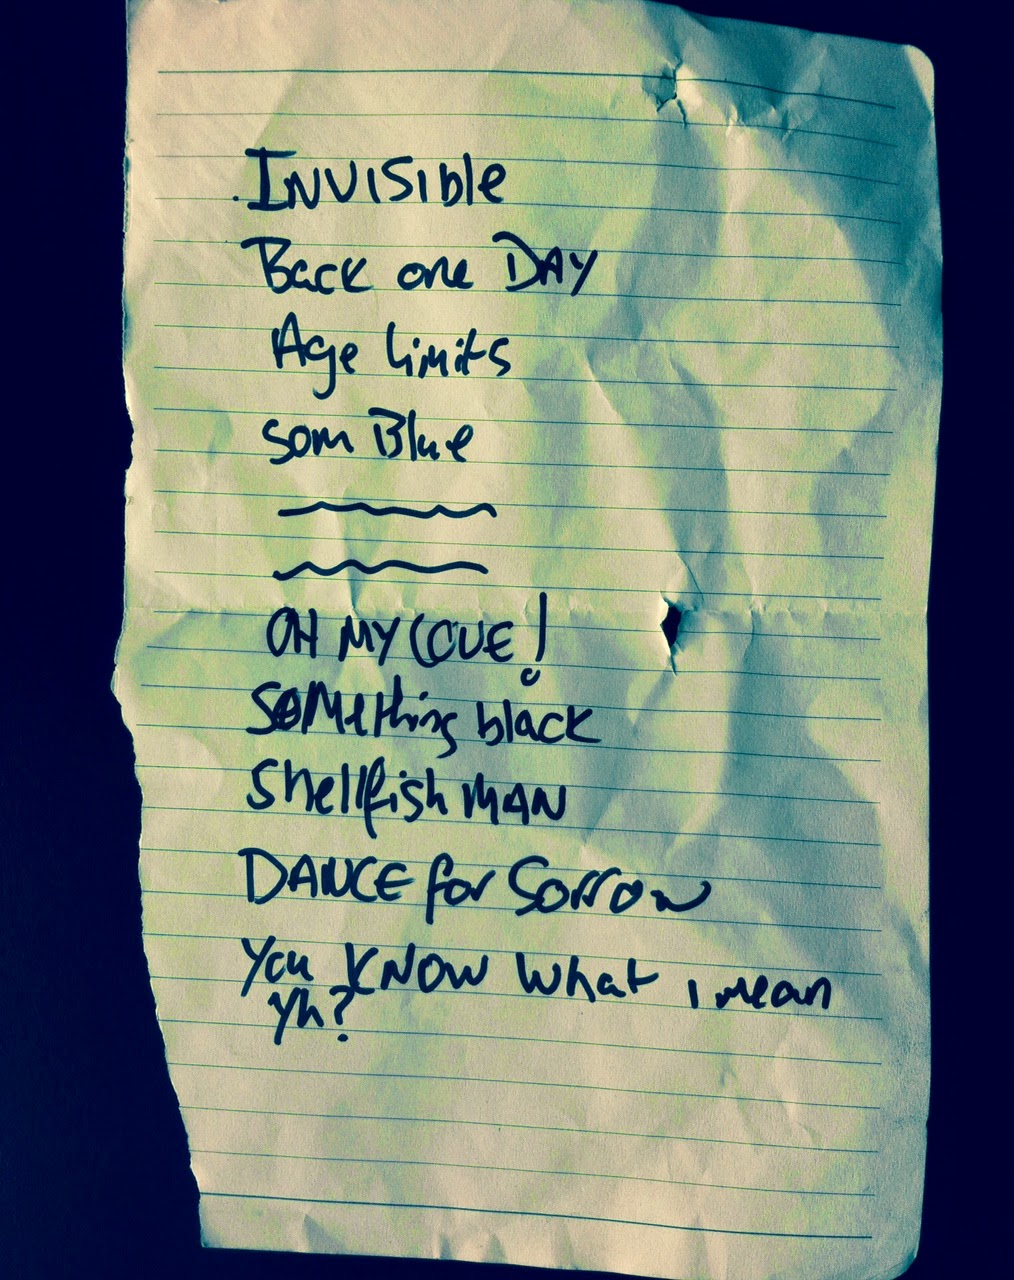 INVISible
Back one DAY
Age limits
som Blue
OH MY LOVE!
SOMething black
Shellfish MAN
DANCE for Sorrow
You KNOW what i mean
yh?